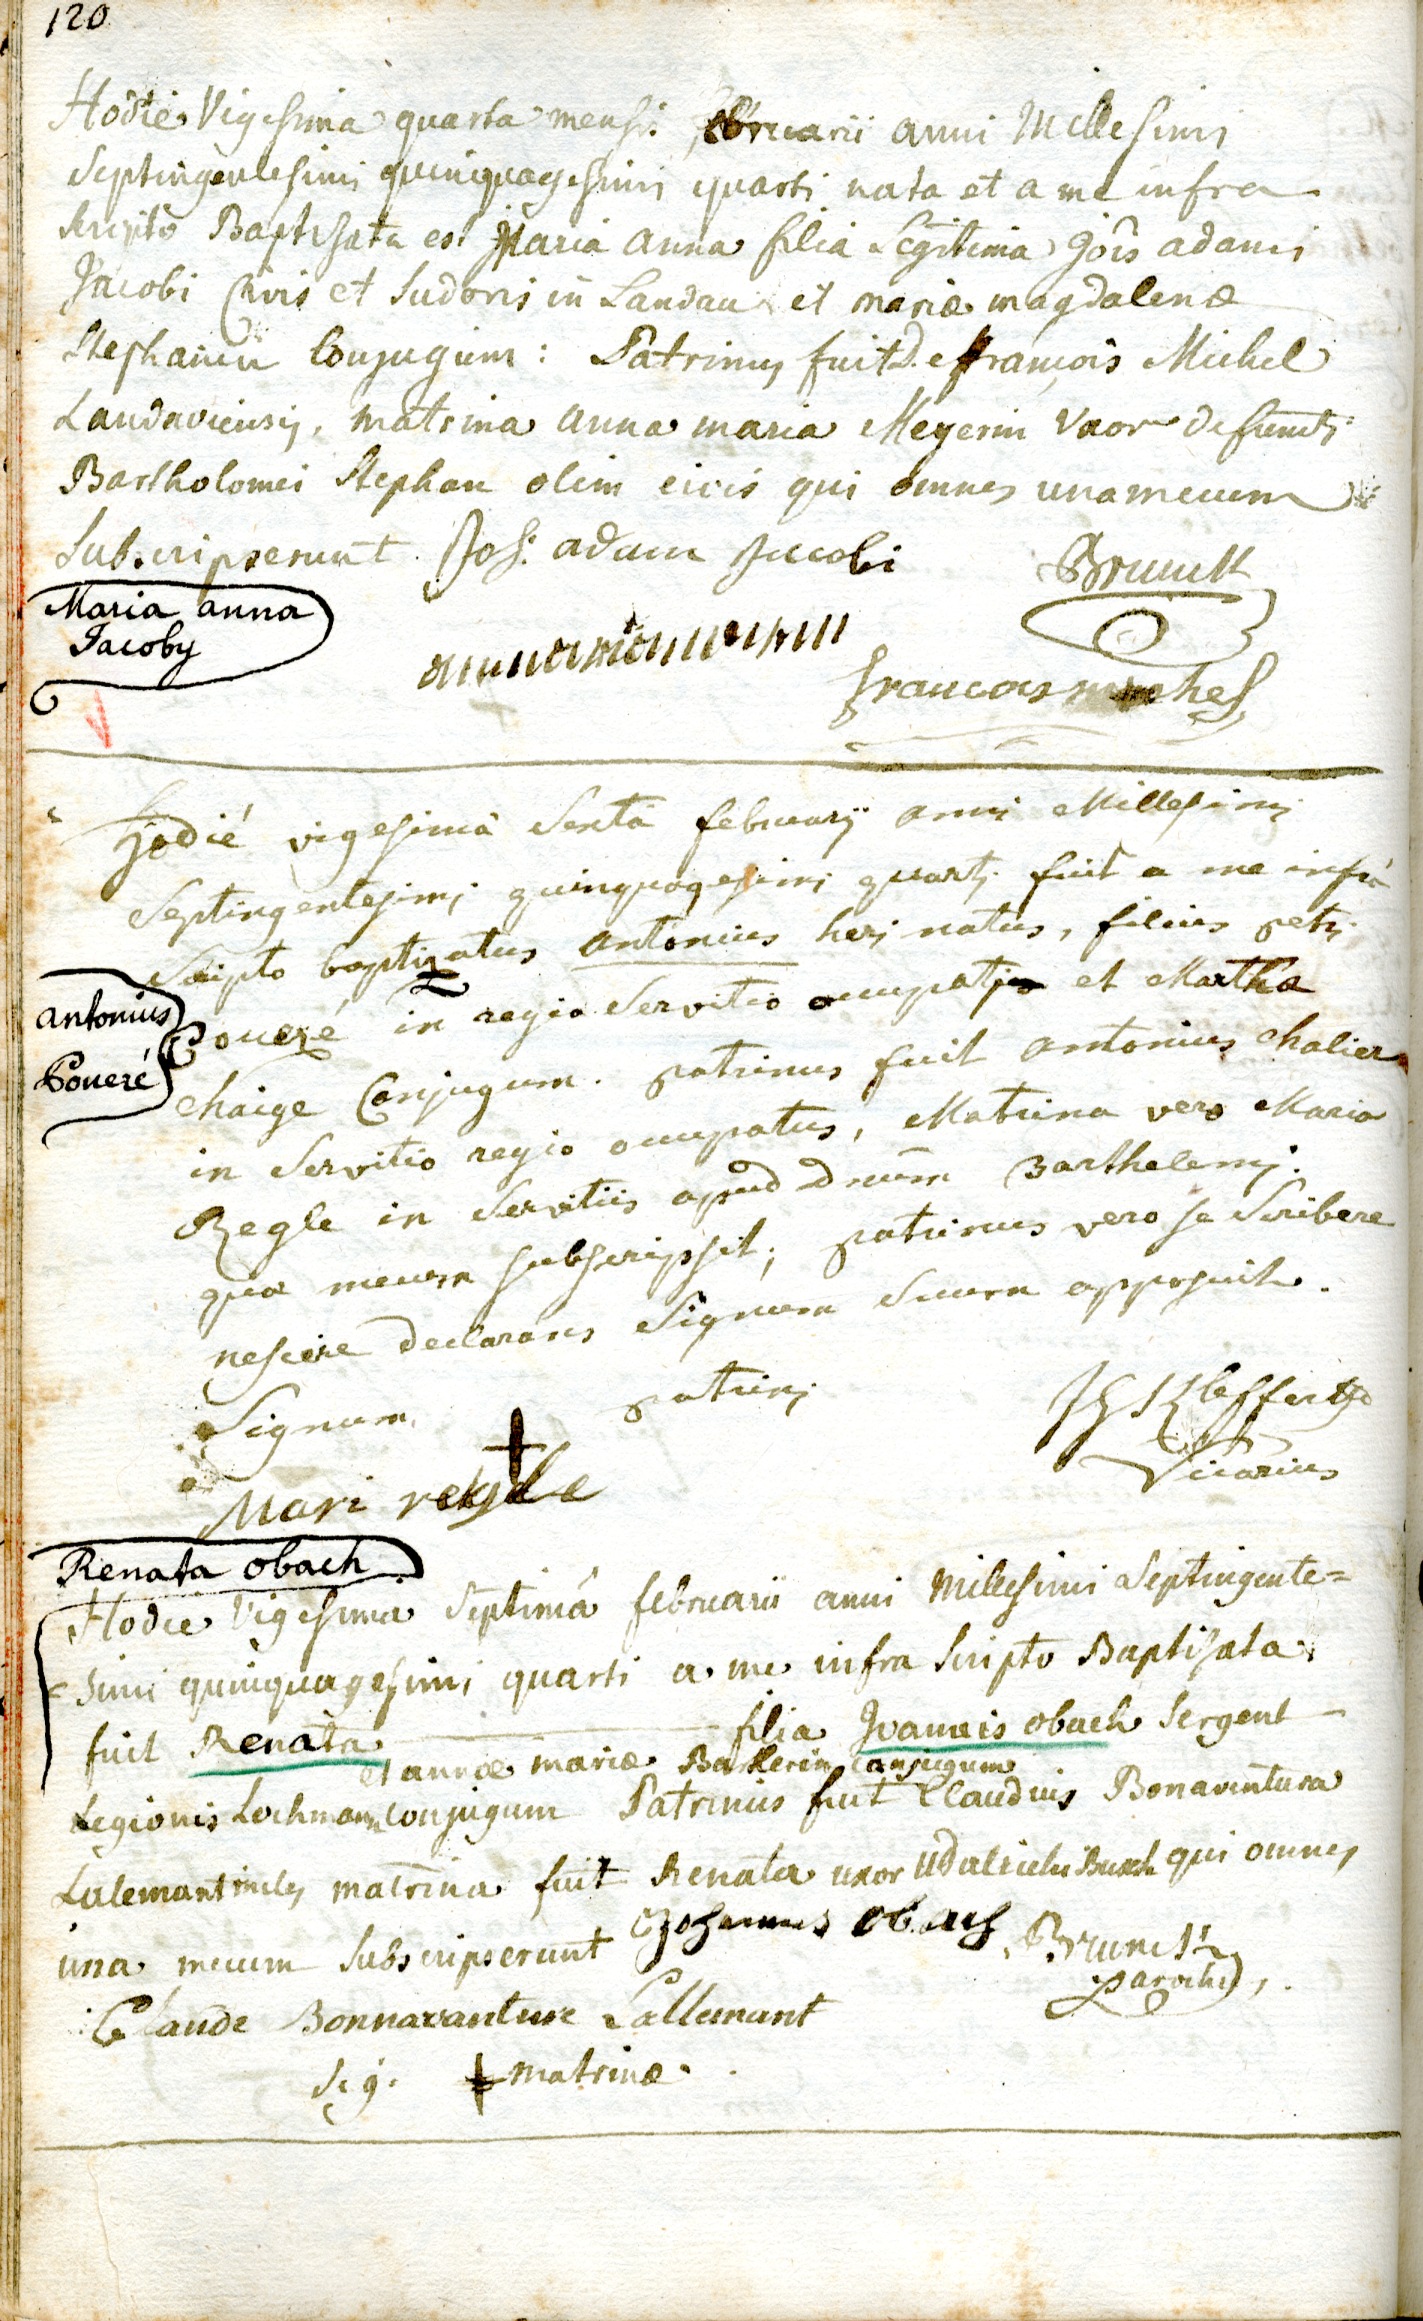 120
Hodie Vigesima quarta mensis februarii anni Millesimi
Septingentesimi quinquagesimi quarti nata et a me infra
scripto Baptisata est Maria Anna filia Legitima Jois adami
Jacobi Civis et Sudoris in Landau et mariæ magdalenæ
Stephanin Conjugum: Patrinus fuit D. francois Michel
Landaviensis, matrina Anna maria Meyerin Vxor defuncti
Bartholomei Stephan olim civis qui omnes una mecum
Subscripserunt Joh: adam Jacobi Brunck
Maria anna
Jacoby
francois michel
Hodié vigesimâ Sextâ februarij anni Millesimi
Septingentesimi quinquagesimi quarti fuit a me infrà
Scripto baptizatus Antonius heri natus, filius petri
Poueré in regio Servitio occupati et Martha
antonius
Poueré
Chaige Conjugum. patrinus fuit Antonius Chalier
in Servitio regio occupatus, Matrina vero Maria
Regle in Servitiis apud Dnum Barthelemj.
quæ mecum subscripsit; patrinus vero se Scribere
nescire declarans Signum Suum apposuit.
Signum patrini
Vicarius
Mari regle
Renata obach
Hodie Vigesima Septimâ februarii anni Millesimi Septingente=
=simi quinquagesimi quarti a me infra Scripto Baptisata
fuit Renata filia Joannis obach Sergent
et annæ mariæ Barlerin Conjugum
Legionis Lochmann Conjugum Patrinus fuit Claudius Bonaventura
Lalemant miles matrina fuit Renata uxor Udalrichi Busch qui omnes
una mecum Subscripserunt Johannes Obach Brunck
parochus
Claude Bonnavanture Lallemant
Sig. + matrinæ